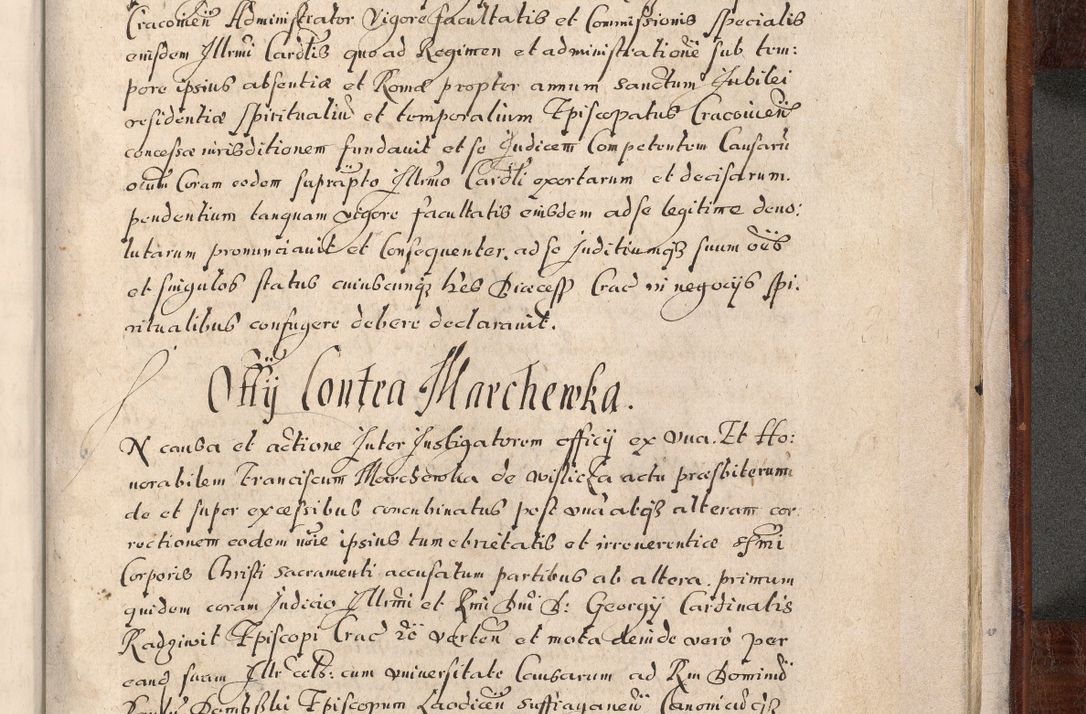 Cracovien Administrator vigore facultatis et Commissionis specialis
eiusdem Illrmi Cardlis quo ad Regimen et administrationē sub tem:
pore ipsius absentiæ et Romæ propter annum sanctum Iubilei
residentiæ spiritualiū et temporalium Episcopatus Cracovien
concessæ iurisditionem fundavit et se Iudicem Competentem Causarū
Coram eodem supraƥto Illrmo Cardli exortarum et decisarum
pendentium tanquam vigore facultatis eiusdem ad se legitime devo:
lutarum pronunciavit et Consequenter ad se Iuditiumqȝ suum oēs
et singulos status cuiuscunqȝ hēs Diæcess Crac in negocijs spi:
ritualibus confugere debere declaravit.
Offij Contra Marchewka.
N causa et actione Inter Instigatorem officij ex una. Et Ho:
norabilem Franciscum Marchewka de Wislicza actu præsbiterum
de et super excessibus concubinatus post unā atqȝ alteram cor
rectionem eodem noīe ipsius tum ebrietatis et irreverentiæ ssmi
Corporis Christi sacramenti accusatum partibus ab altera. primum
quidem coram Iudicio Illrmi et Rmi Dni D: Georgij Cardinalis
Radziwil Episcopi Crac &c verten et mota deinde vero per
eand suam Illr cels: cum universitate Causarum ad Rm Dominū
Dembski Episcopum Laodicen suffraganeū Canonicūqȝ